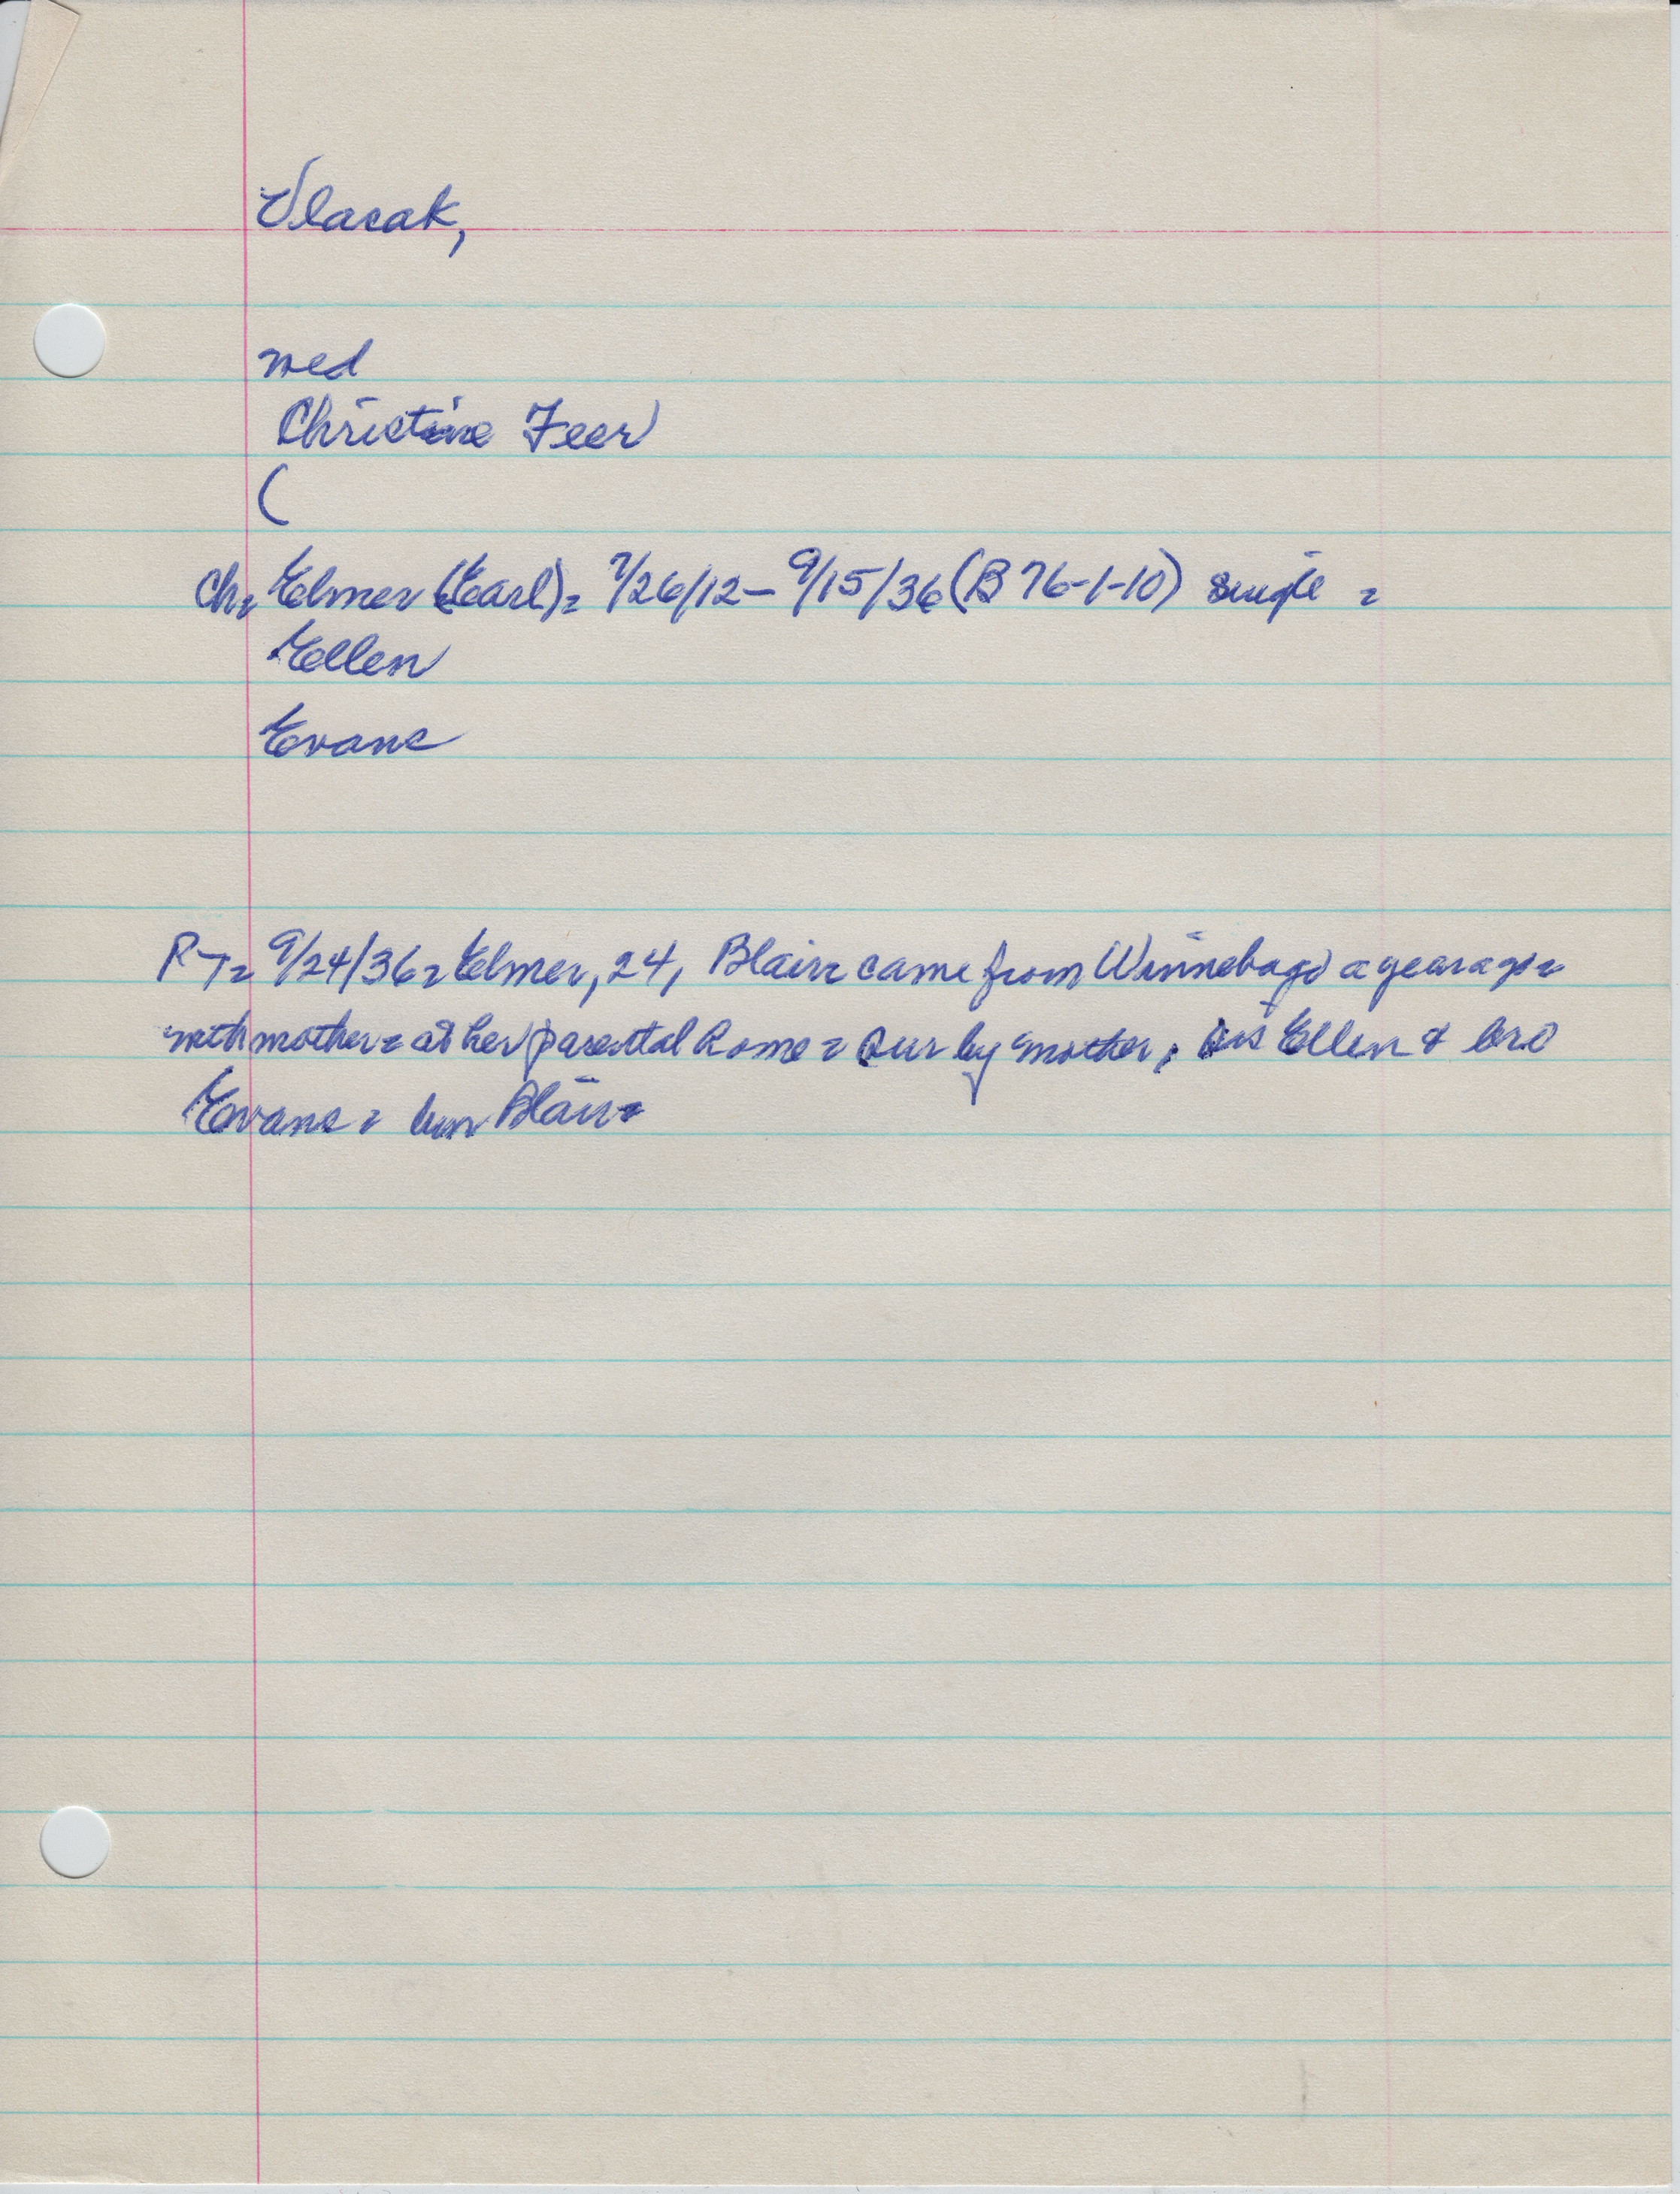 Vlasak,
med
Christine Feer
(
Ch= Elmer (Earl)= 7/26/12 - 9/15/36 (B 76-1-10) single =
Ellen
Evans
PT= 9/24/36= Elmer, 24, Blair= came from Winnebago a year ago=
with mother= at her parental home= sur by mother, sis Ellen & bro
Evans= bur Blair=